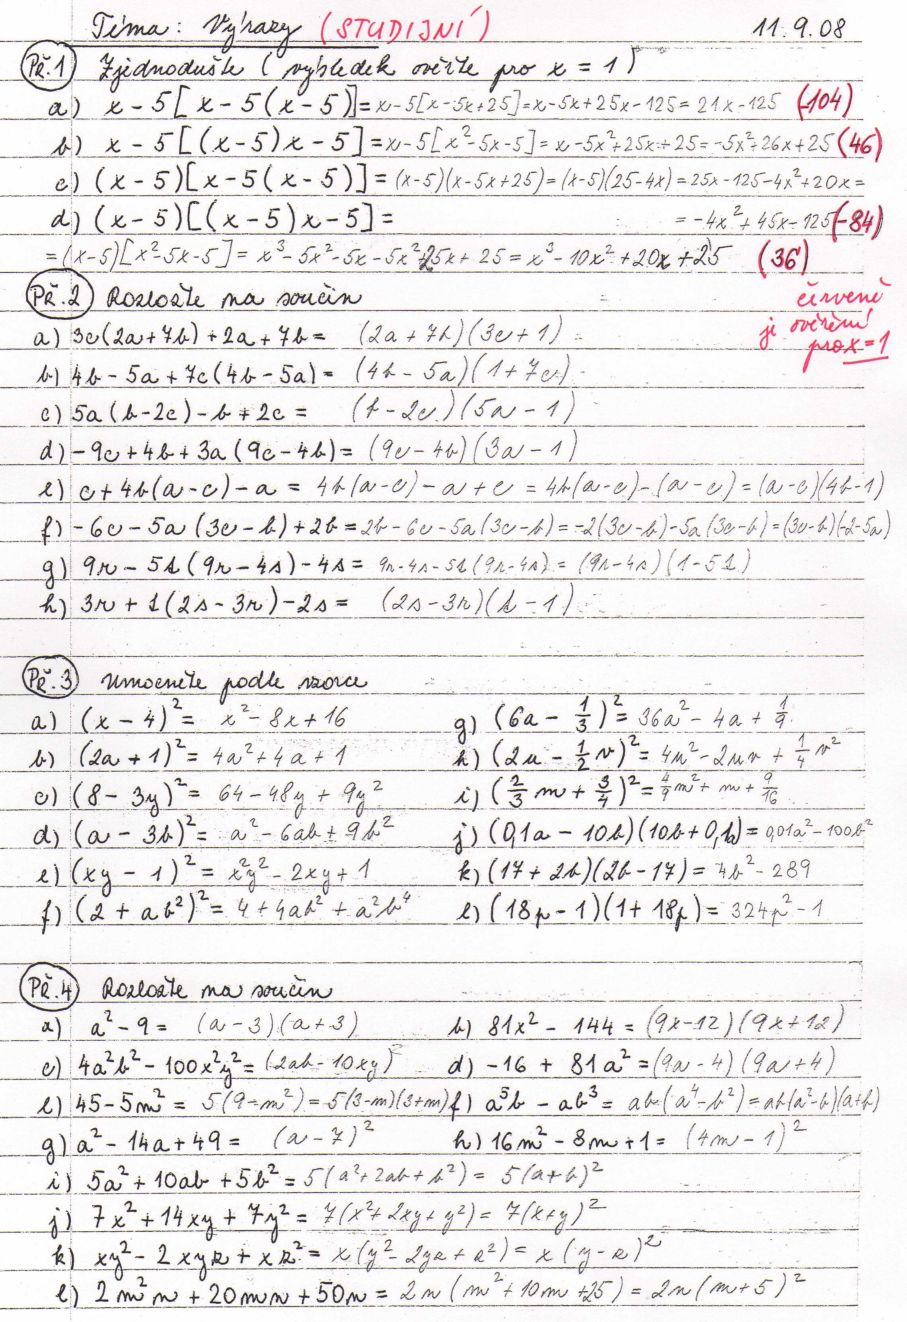 Téma: Výrazy (STUDIJNÍ) 11.9.08
Př.1 Zjednodušte (výsledek ověřte pro x = 1)
a) x - 5[x - 5(x - 5)] = x - 5[x - 5x + 25] = x - 5x + 25x - 125 = 21x - 125 (-104)
b) x - 5[(x - 5)x - 5] = x - 5[x² - 5x - 5] = x - 5x² + 25x + 25 = -5x² + 26x + 25 (46)
c) (x - 5)[x - 5(x - 5)] = (x-5)(x - 5x + 25) = (x-5)(25 - 4x) = 25x - 125 - 4x² + 20x =
d) (x - 5)[(x - 5)x - 5] = = -4x² + 45x - 125 (-84)
= (x-5)[x² - 5x - 5] = x³ - 5x² - 5x - 5x² + 25x + 25 = x³ - 10x² + 20x + 25 (36)
Př.2 Rozložte na součin červeně
je ověření
pro x = 1
a) 3c(2a + 7b) + 2a + 7b = (2a + 7b)(3c + 1)
b) 4b - 5a + 7c(4b - 5a) = (4b - 5a)(1 + 7c)
c) 5a(b - 2c) - b + 2c = (b - 2c)(5a - 1)
d) -9c + 4b + 3a(9c - 4b) = (9c - 4b)(3a - 1)
e) c + 4b(a - c) - a = 4b(a - c) - a + c = 4b(a - c) - (a - c) = (a - c)(4b - 1)
f) -6c - 5a(3c - b) + 2b = 2b - 6c - 5a(3c - b) = -2(3c - b) - 5a(3c - b) = (3c - b)(-2 - 5a)
g) 9r - 5s(9r - 4s) - 4s = 9r - 4s - 5s(9r - 4s) = (9r - 4s)(1 - 5s)
h) 3r + s(2s - 3r) - 2s = (2s - 3r)(s - 1)
Př.3 Umocněte podle vzorce
a) (x - 4)² = x² - 8x + 16 g) (6a - 1/3)² = 36a² - 4a + 1/9
b) (2a + 1)² = 4a² + 4a + 1 h) (2u - 1/2 v)² = 4u² - 2uv + 1/4 v²
c) (8 - 3y)² = 64 - 48y + 9y² i) (2/3 m + 3/4)² = 4/9 m² + m + 9/16
d) (a - 3b)² = a² - 6ab + 9b² j) (0,1a - 10b)(10b + 0,1a) = 0,01a² - 100b²
e) (xy - 1)² = x²y² - 2xy + 1 k) (17 + 2b)(2b - 17) = 4b² - 289
f) (2 + ab²)² = 4 + 4ab² + a²b⁴ l) (18p - 1)(1 + 18p) = 324p² - 1
Př.4 Rozložte na součin
a) a² - 9 = (a - 3)(a + 3) b) 81x² - 144 = (9x - 12)(9x + 12)
c) 4a²b² - 100x²y² = (2ab - 10xy)² d) -16 + 81a² = (9a - 4)(9a + 4)
e) 45 - 5m² = 5(9 - m²) = 5(3 - m)(3 + m) f) a⁵b - ab³ = ab(a⁴ - b²) = ab(a² - b)(a + b)
g) a² - 14a + 49 = (a - 7)² h) 16m² - 8m + 1 = (4m - 1)²
i) 5a² + 10ab + 5b² = 5(a² + 2ab + b²) = 5(a + b)²
j) 7x² + 14xy + 7y² = 7(x² + 2xy + y²) = 7(x + y)²
k) xy² - 2xyz + xz² = x(y² - 2yz + z²) = x(y - z)²
l) 2m²n + 20mn + 50n = 2n(m² + 10m + 25) = 2n(m + 5)²